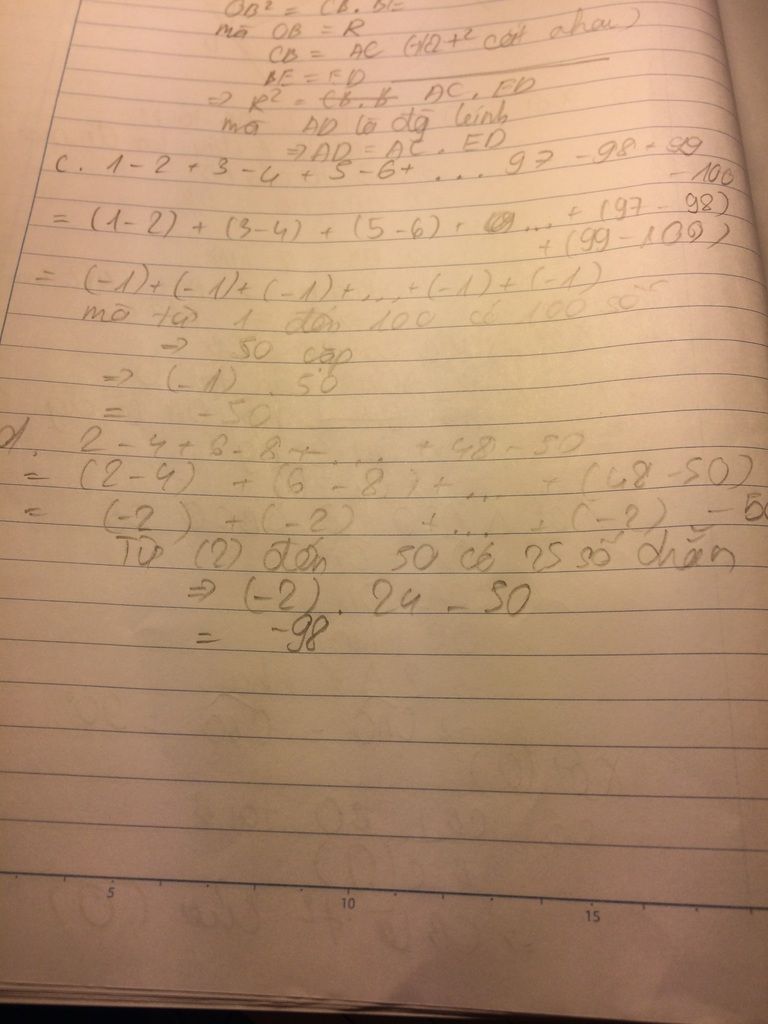 OB² = CB. BE
mà OB = R
CB = AC (+/c t² cắt nhau)
BE = ED
⇒ R² = CB. B AC . ED
mà AD là đg kính
⇒ AD = AC . ED
c. 1 - 2 + 3 - 4 + 5 - 6 + . . . 97 - 98 + 99
- 100
= (1 - 2) + (3 - 4) + (5 - 6) + ... + (97 - 98)
+ (99 - 100)
= (-1) + (-1) + (-1) + ... + (-1) + (-1)
mà từ 1 đến 100 có 100 số
⇒ 50 cặp
⇒ (-1) . 50
= - 50
d. 2 - 4 + 6 - 8 + .... + 48 - 50
= (2 - 4) + (6 - 8) + ... + (48 - 50)
= (-2) + (-2) + ... + (-2) - 50
Từ (2) đến 50 có 25 số chẵn
⇒ (-2) . 24 - 50
= -98
5 10 15